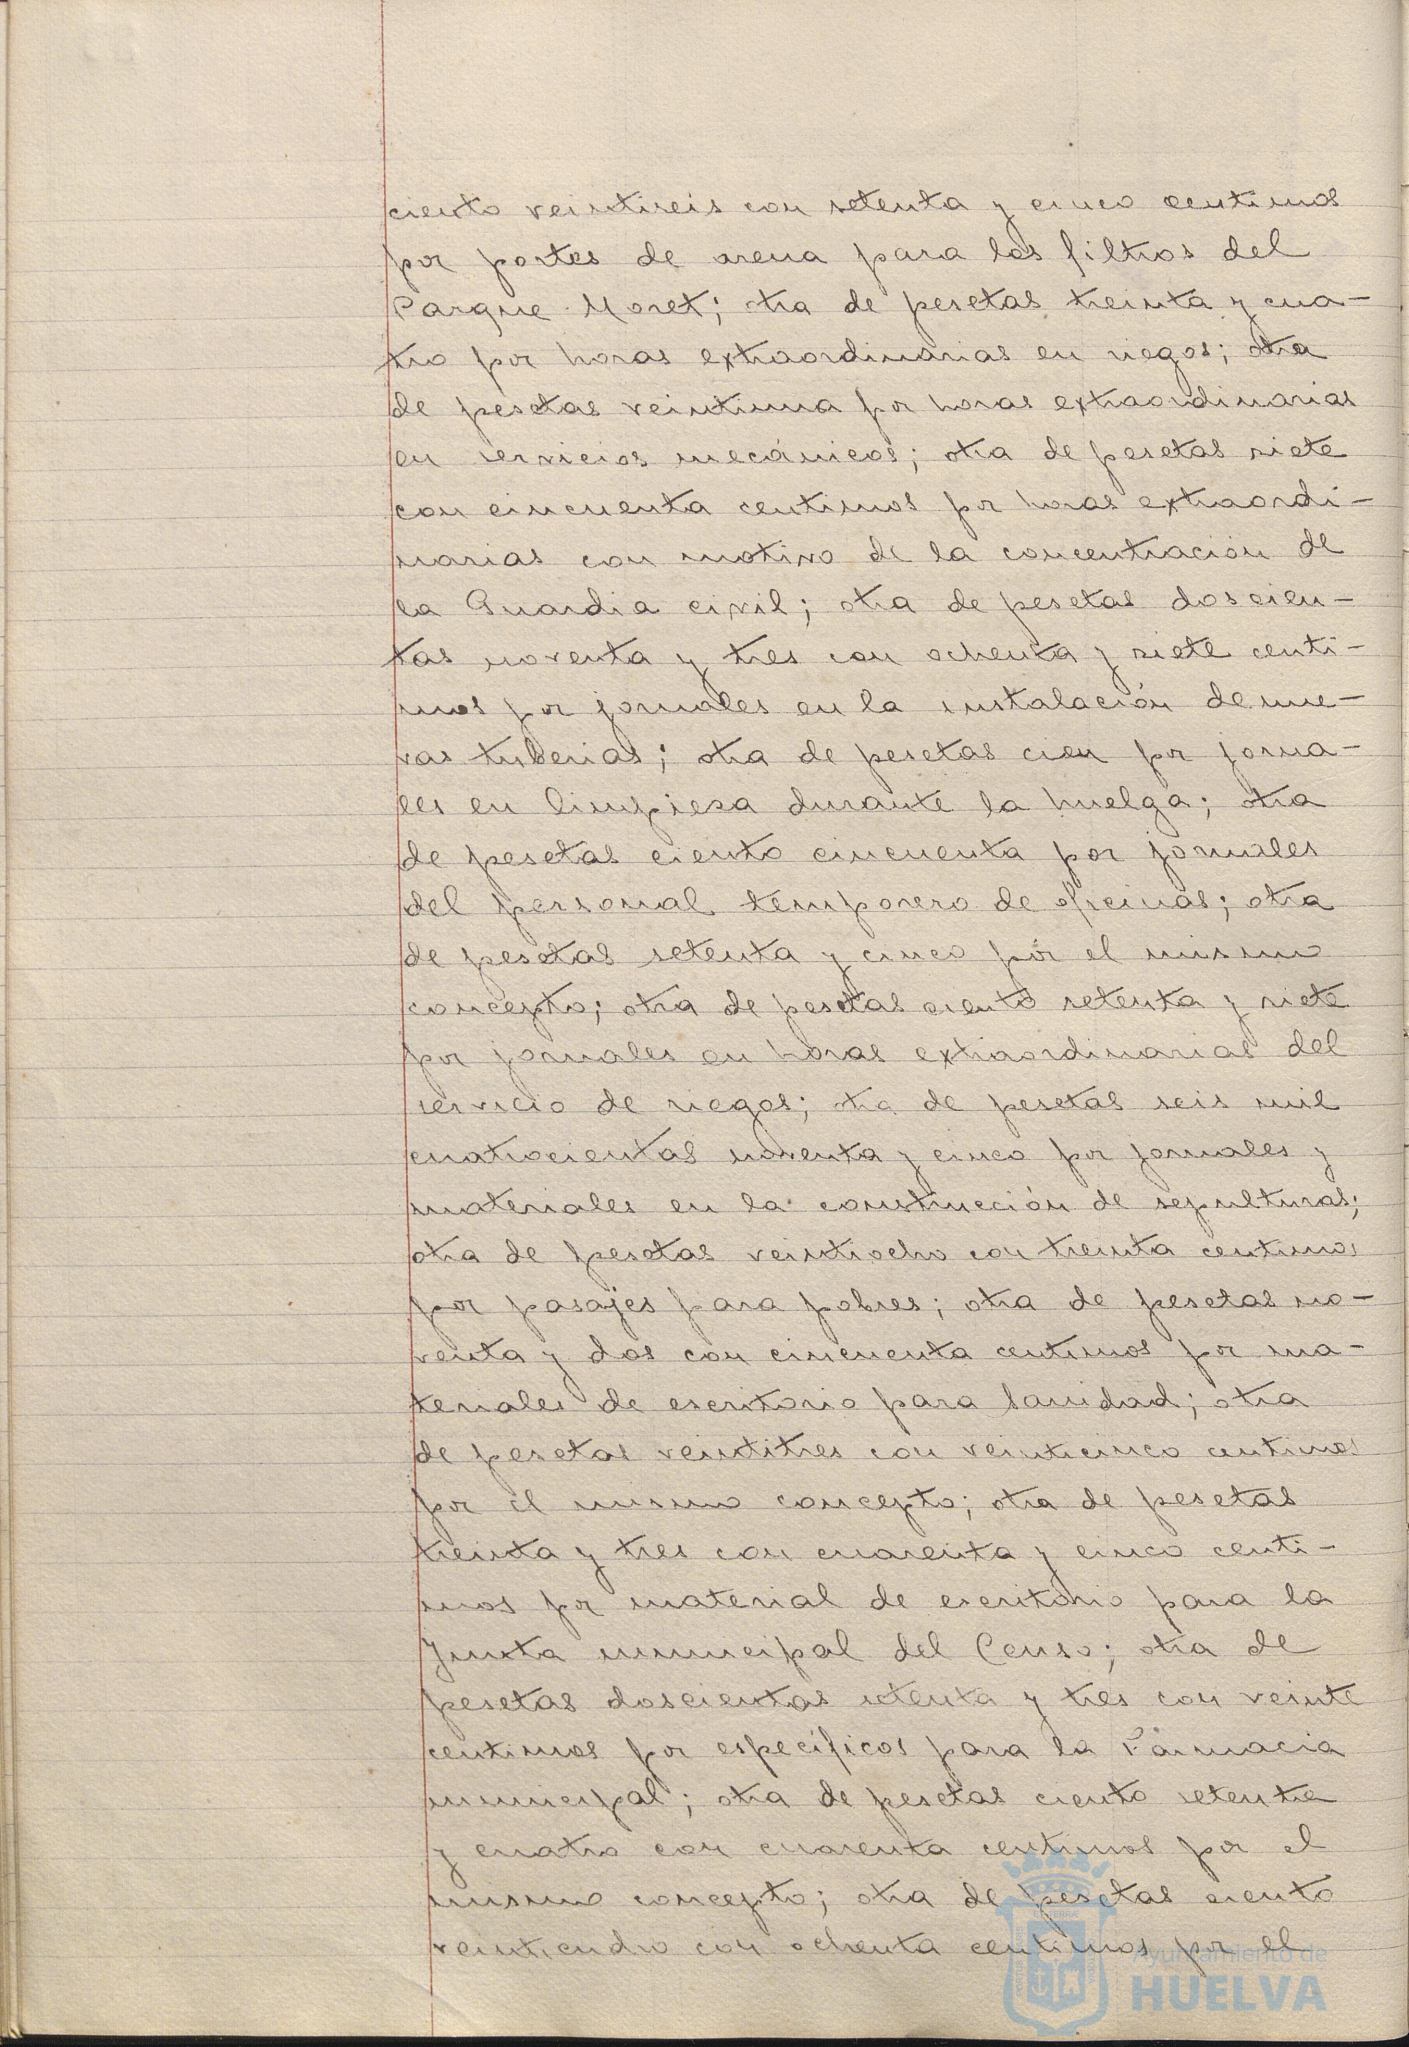 ciento veintiseis con setenta y cinco centimos
por portes de arena para los filtros del
Parque Moret; otra de pesetas treinta y cua-
tro por horas extraordinarias en riegos; otra
de pesetas veintiuna por horas extraordinarias
en servicios mecánicos; otra de pesetas siete
con cincuenta centimos por horas extraordi-
narias con motivo de la concentración de
la Guardia civil; otra de pesetas doscien-
tas noventa y tres con ochenta y siete centi-
mos por jornales en la instalación de nue-
vas tuberias; otra de pesetas cien por jorna-
les en limpiesa durante la huelga; otra
de pesetas ciento cincuenta por jornales
del personal temporero de oficinas; otra
de pesetas setenta y cinco por el mismo
concepto; otra de pesetas ciento setenta y siete
por jornales en horas extraordinarias del
servicio de riegos; otra de pesetas seis mil
cuatrocientas noventa y cinco por jornales y
materiales en la construcción de sepulturas;
otra de pesetas veintiocho con treinta centimos
por pasajes para pobres; otra de pesetas no-
venta y dos con cincuenta centimos por ma-
teriales de escritorio para Sanidad; otra
de pesetas veintitres con veinticinco centimos
por el mismo concepto; otra de pesetas
treinta y tres con cuarenta y cinco centi-
mos por material de escritorio para la
Junta municipal del Censo; otra de
pesetas doscientas setenta y tres con veinte
centimos por específicos para la Farmacia
municipal; otra de pesetas ciento setenta
y cuatro con cuarenta centimos por el
mismo concepto; otra de pesetas ciento
veinticuatro con ochenta centimos por el
Ayuntamiento de
HUELVA